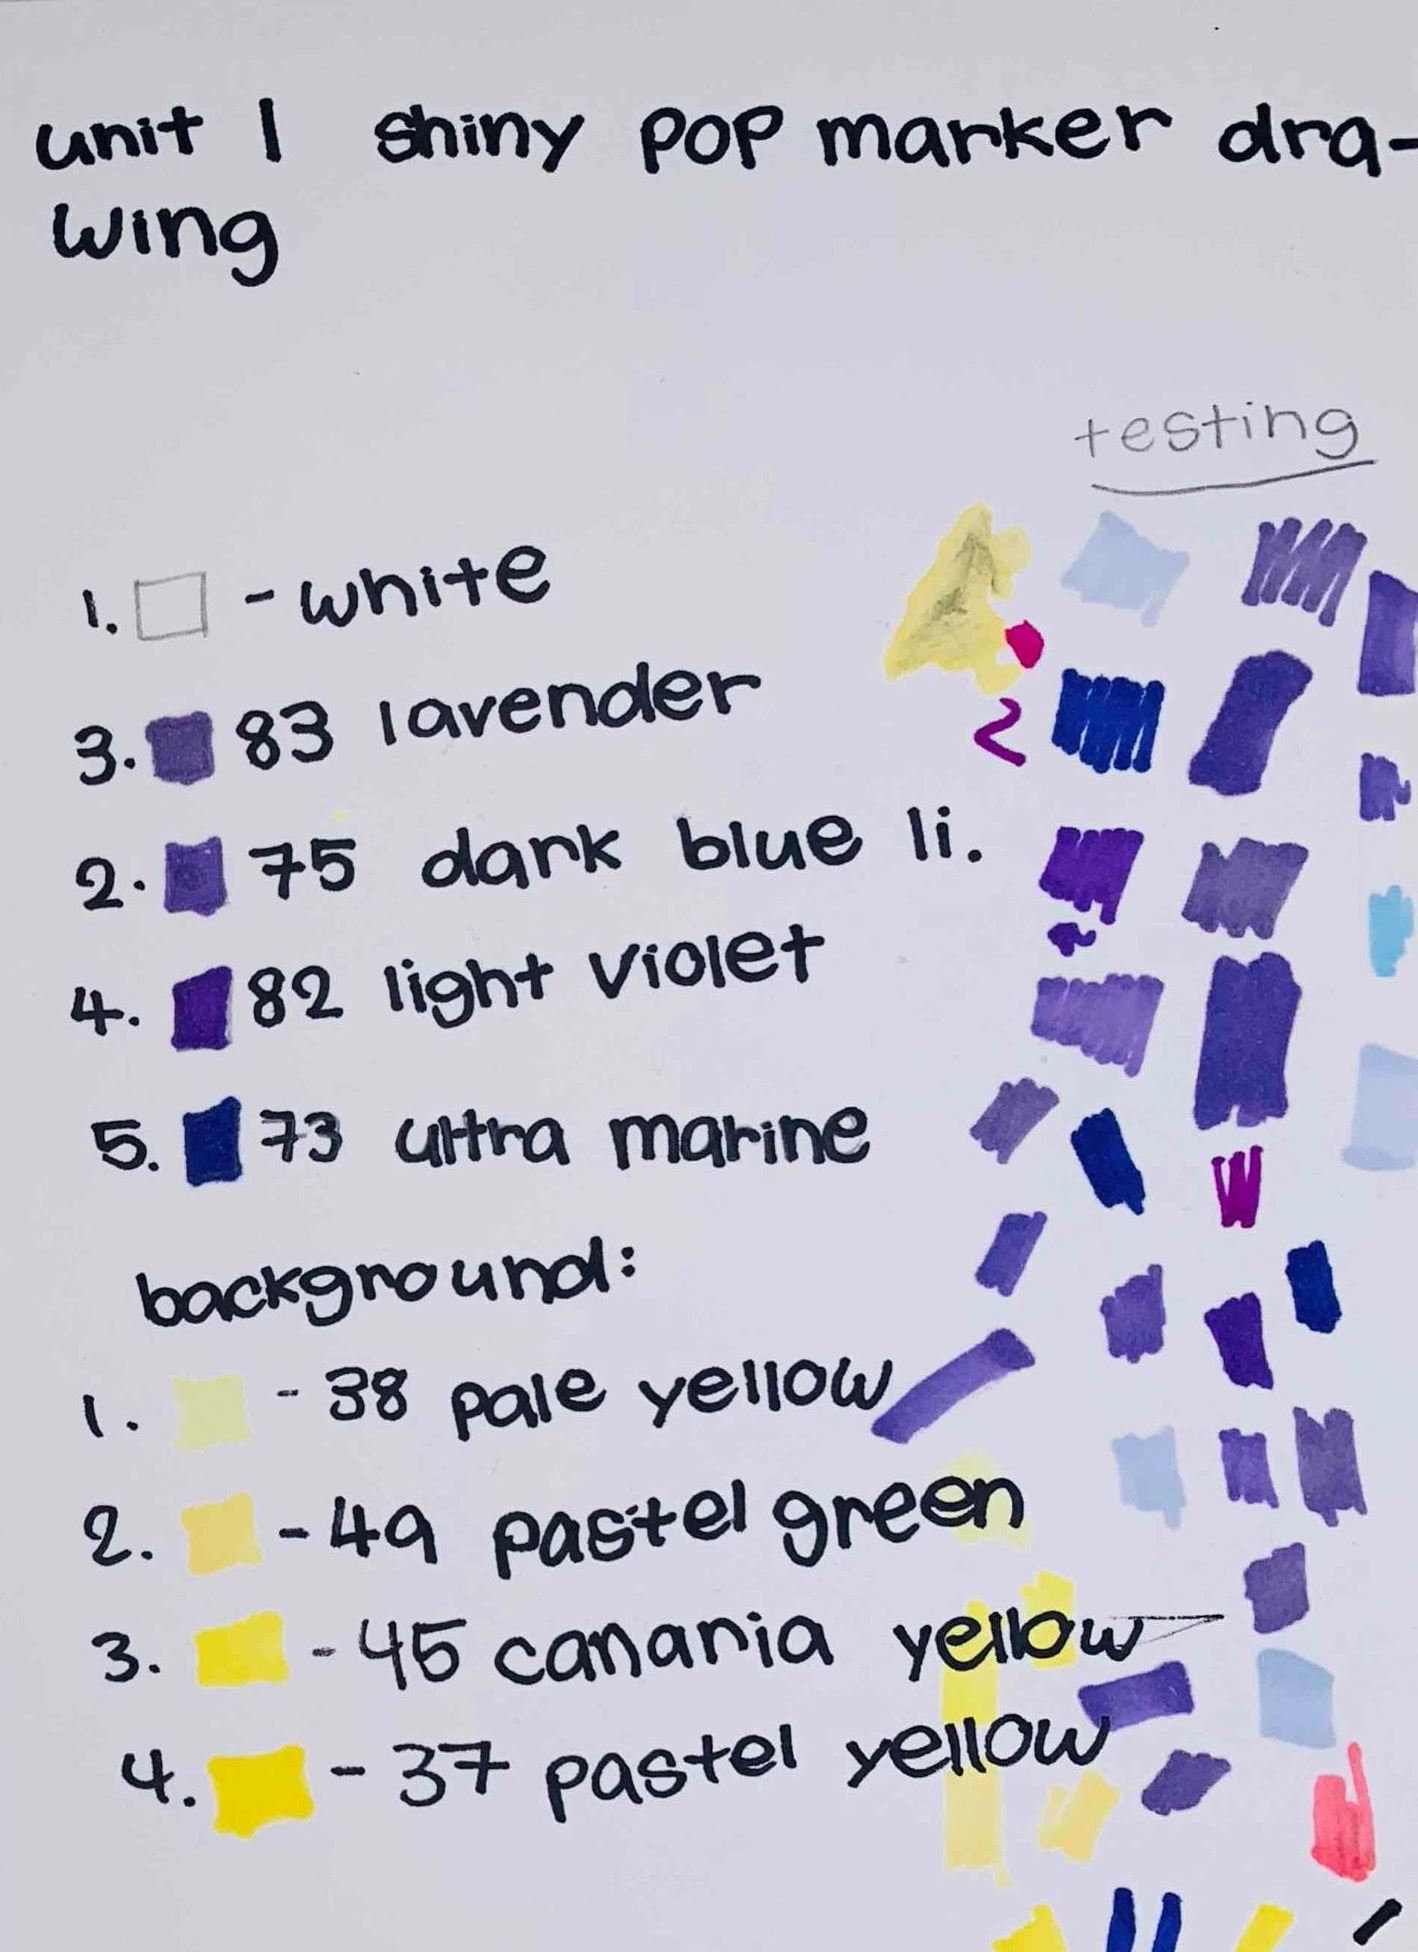 unit 1 shiny pop marker dra-
wing
testing
1. - white
3. 83 lavender
2. 75 dark blue li.
4. 82 light violet
5. 73 ultra marine
background:
1. - 38 pale yellow
2. - 49 pastel green
3. - 45 canaria yellow
4. - 37 pastel yellow